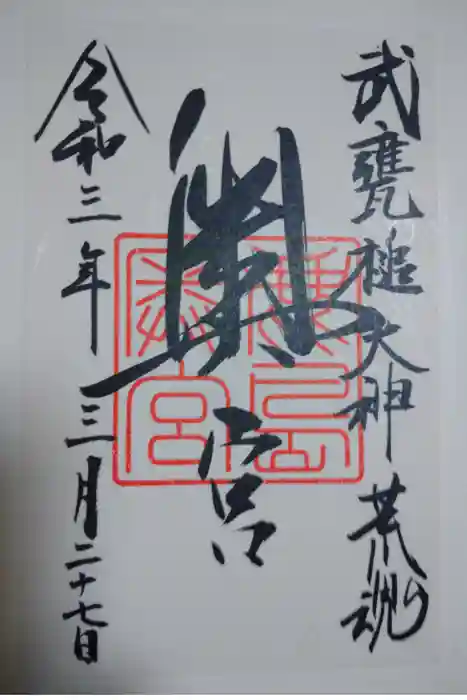 武甕槌大神 荒魂
奥宮
鹿島奥宮
令和三年 三月二十七日